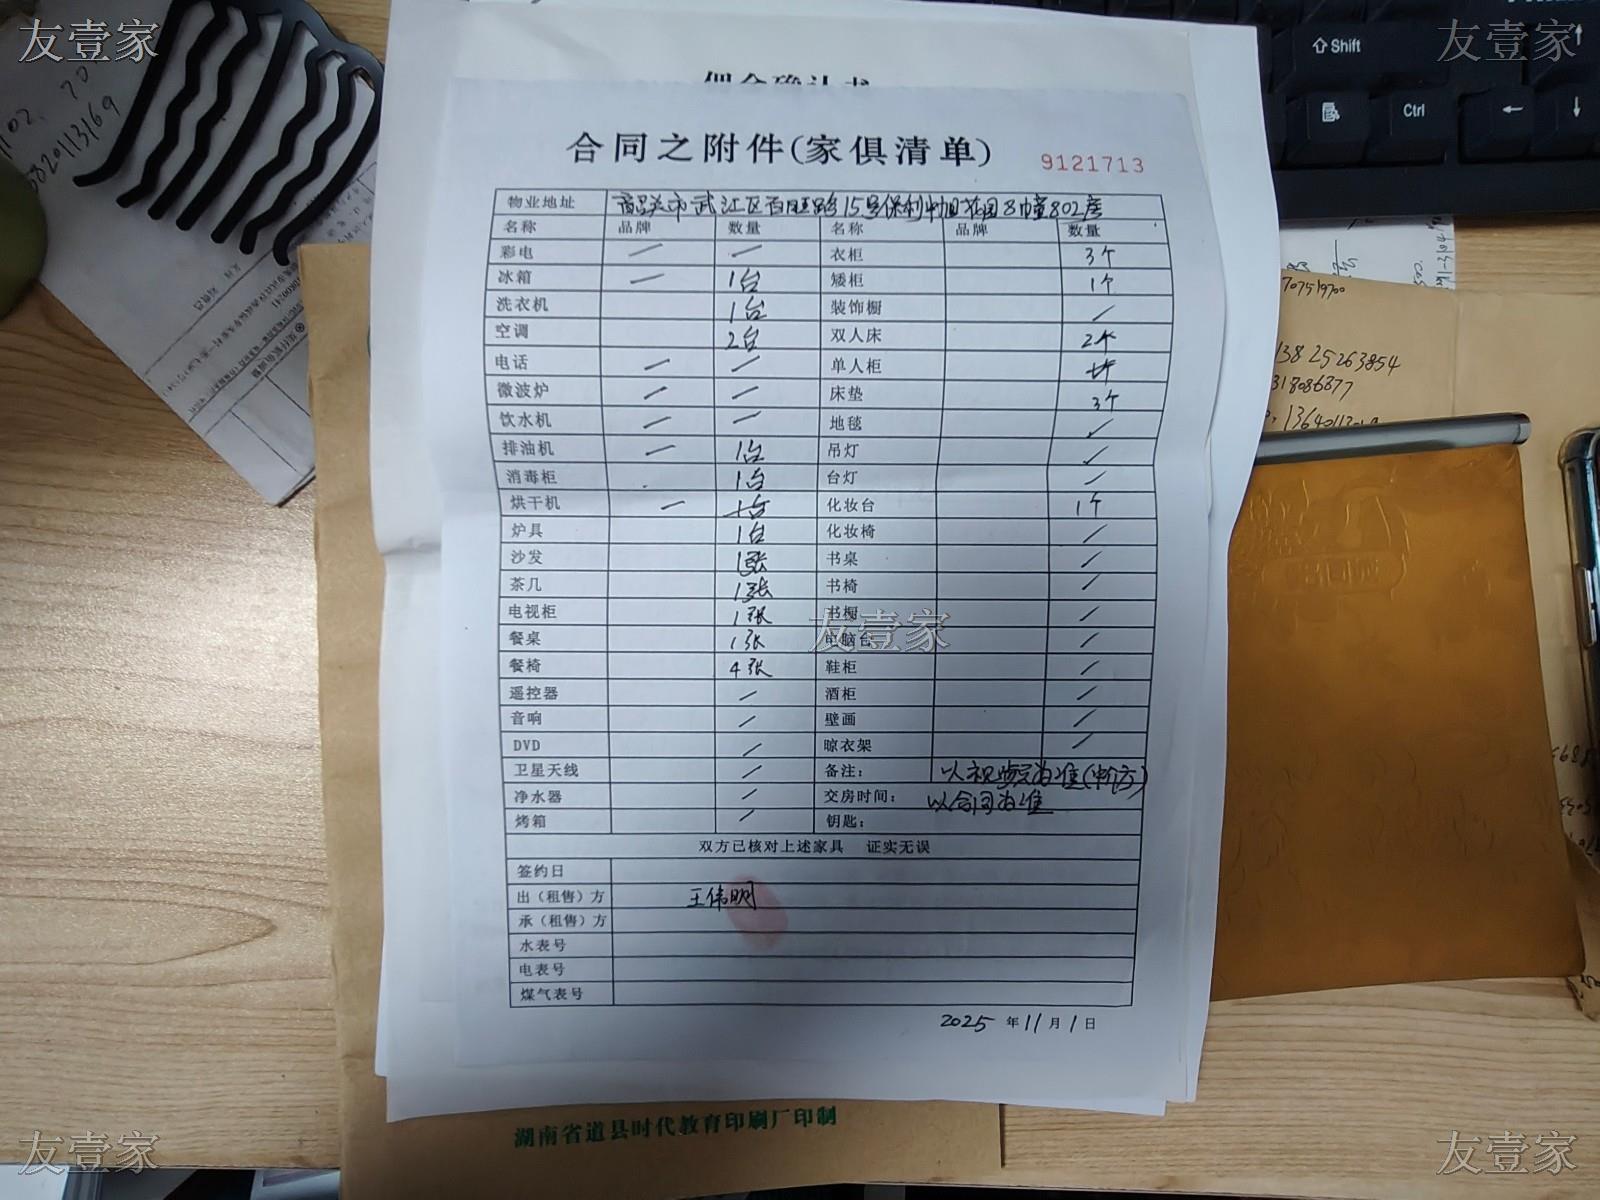 友壹家
友壹家
Shift
Ctrl
佣金确认书
合同之附件(家俱清单)
9121713
物业地址 韶关市武江区百旺路15号保利中旭花园8幢802房
名称 品牌 数量 名称 品牌 数量
彩电 / / 衣柜 3个
冰箱 / 1台 矮柜 1个
洗衣机 1台 装饰橱 /
空调 2台 双人床 2个
电话 / / 单人柜
微波炉 / / 床垫 3个
饮水机 / / 地毯 /
排油机 / 1台 吊灯 /
消毒柜 1台 台灯 /
烘干机 / 化妆台 1个
炉具 1台 化妆椅 /
沙发 1张 书桌 /
茶几 1张 书椅 /
电视柜 1张 书橱 /
餐桌 1张 电脑台 /
餐椅 4张 鞋柜 /
遥控器 / 酒柜 /
音响 / 壁画 /
DVD / 晾衣架 /
卫星天线 / 备注: 以视频为准
净水器 / 交房时间: 以合同为准
烤箱 / 钥匙:
双方已核对上述家具 证实无误
签约日
出(租售)方 王伟明
承(租售)方
水表号
电表号
煤气表号
2025 年 11 月 1 日
湖南省道县时代教育印刷厂印制
13825263854
友壹家
友壹家
友壹家